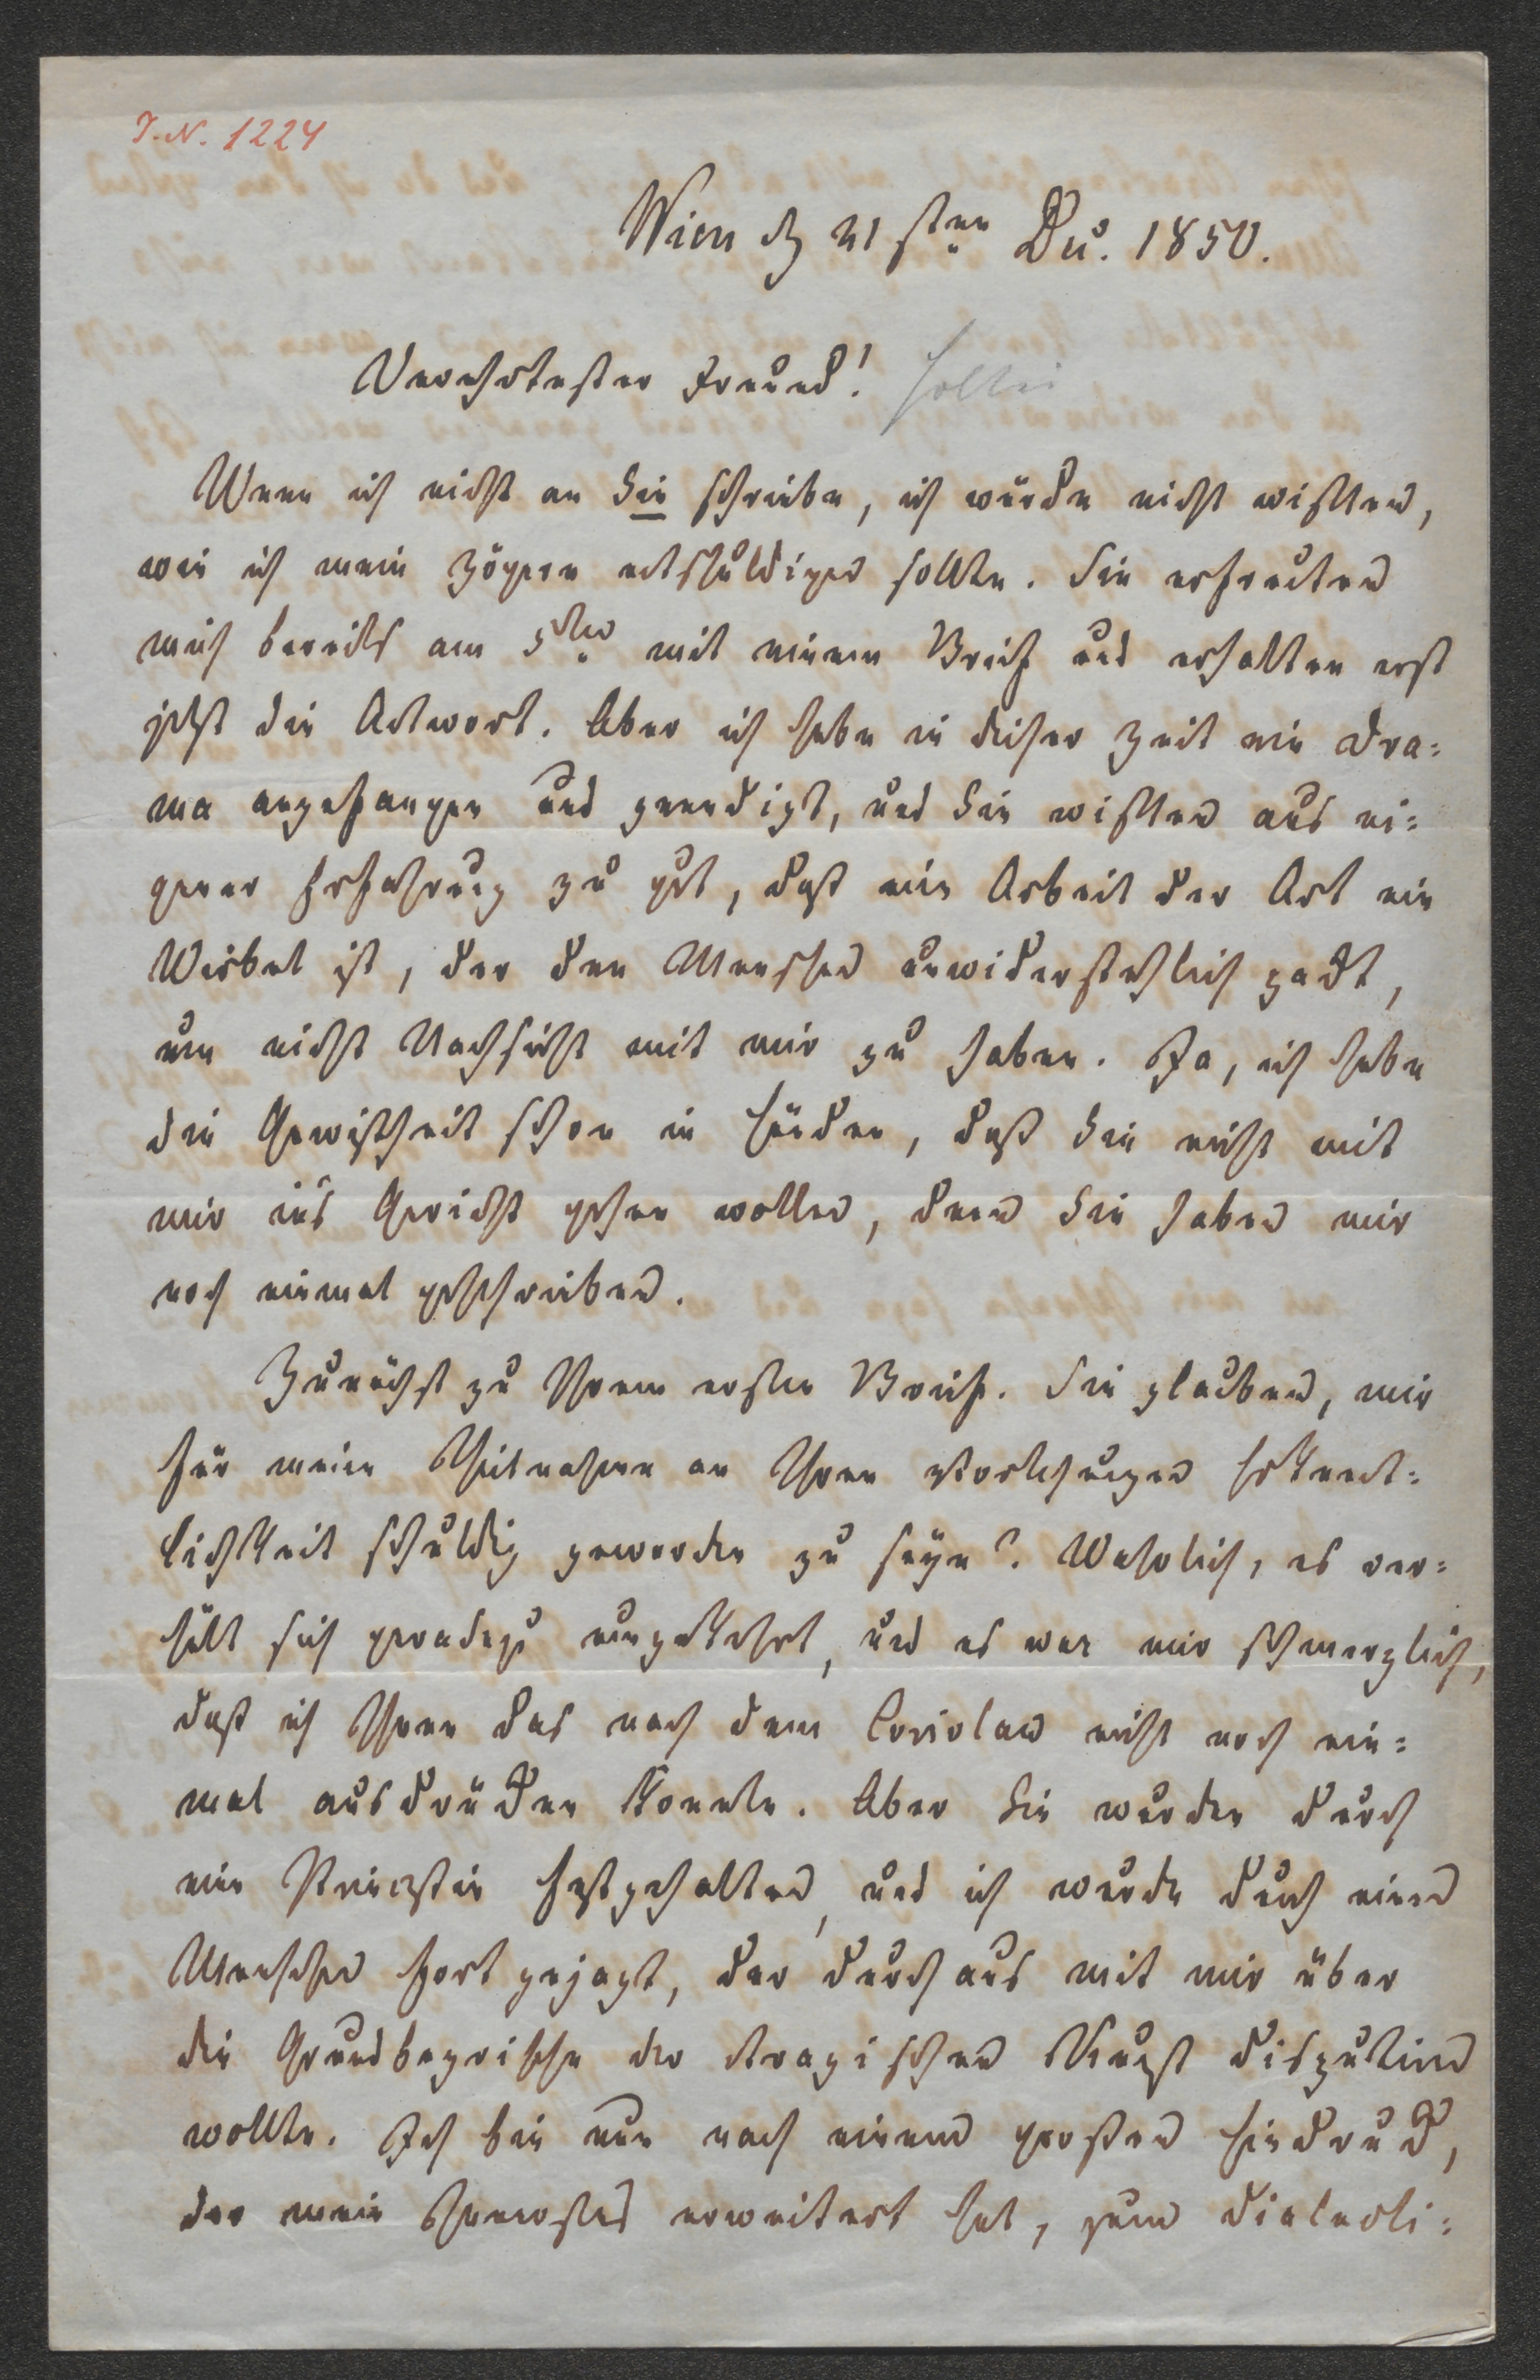 I.N. 1224
Wien d 21sten Dec. 1850.
Verehrtester Freund! Holtei
Wenn ich nicht an Sie schriebe, ich würde nicht wissen,
wie ich mein Zögern entschuldigen sollte. Sie erfreuten
mich bereits am 5ten mit einem Brief und erhalten erst
jetzt die Antwort. Aber ich habe in dieser Zeit ein Dra=
ma angefangen und geendigt, und Sie wissen aus ei=
gener Erfahrung zu gut, daß eine Arbeit der Art ein
Wirbel ist, der den Menschen unwiderstehlich packt,
um nicht Nachsicht mit mir zu haben. Ja, ich habe
die Gewißheit schon in Händen, daß Sie nicht mit
mir in's Gericht gehen wollen, denn Sie haben mir
noch einmal geschrieben.
Zunächst zu Ihrem ersten Brief. Sie glauben, mir
für meine Theilnahme an Ihren Vorlesungen Erkennt=
lichkeit schuldig geworden zu seyn? Wahrlich, es ver=
hält sich geradezu umgekehrt, und es war mir schmerzlich,
daß ich Ihnen das nach dem Coriolan nicht noch ein=
mal ausdrücken konnte. Aber Sie wurden durch
eine festgehalten, und ich wurde durch einen
Menschen fortgejagt, der durchaus mit mir über
die Grundbegriffe der tragischen Kunst disputiren
wollte. Ich bin nun nach einem großen Eindruck,
der mein Innerstes erweitert hat, zum Dialecti=